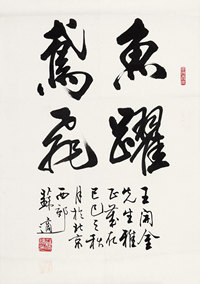 魚躍
鳶飛
王 金
先生雅
正歲在
己巳之秋
月於北京
西郊
蘇適